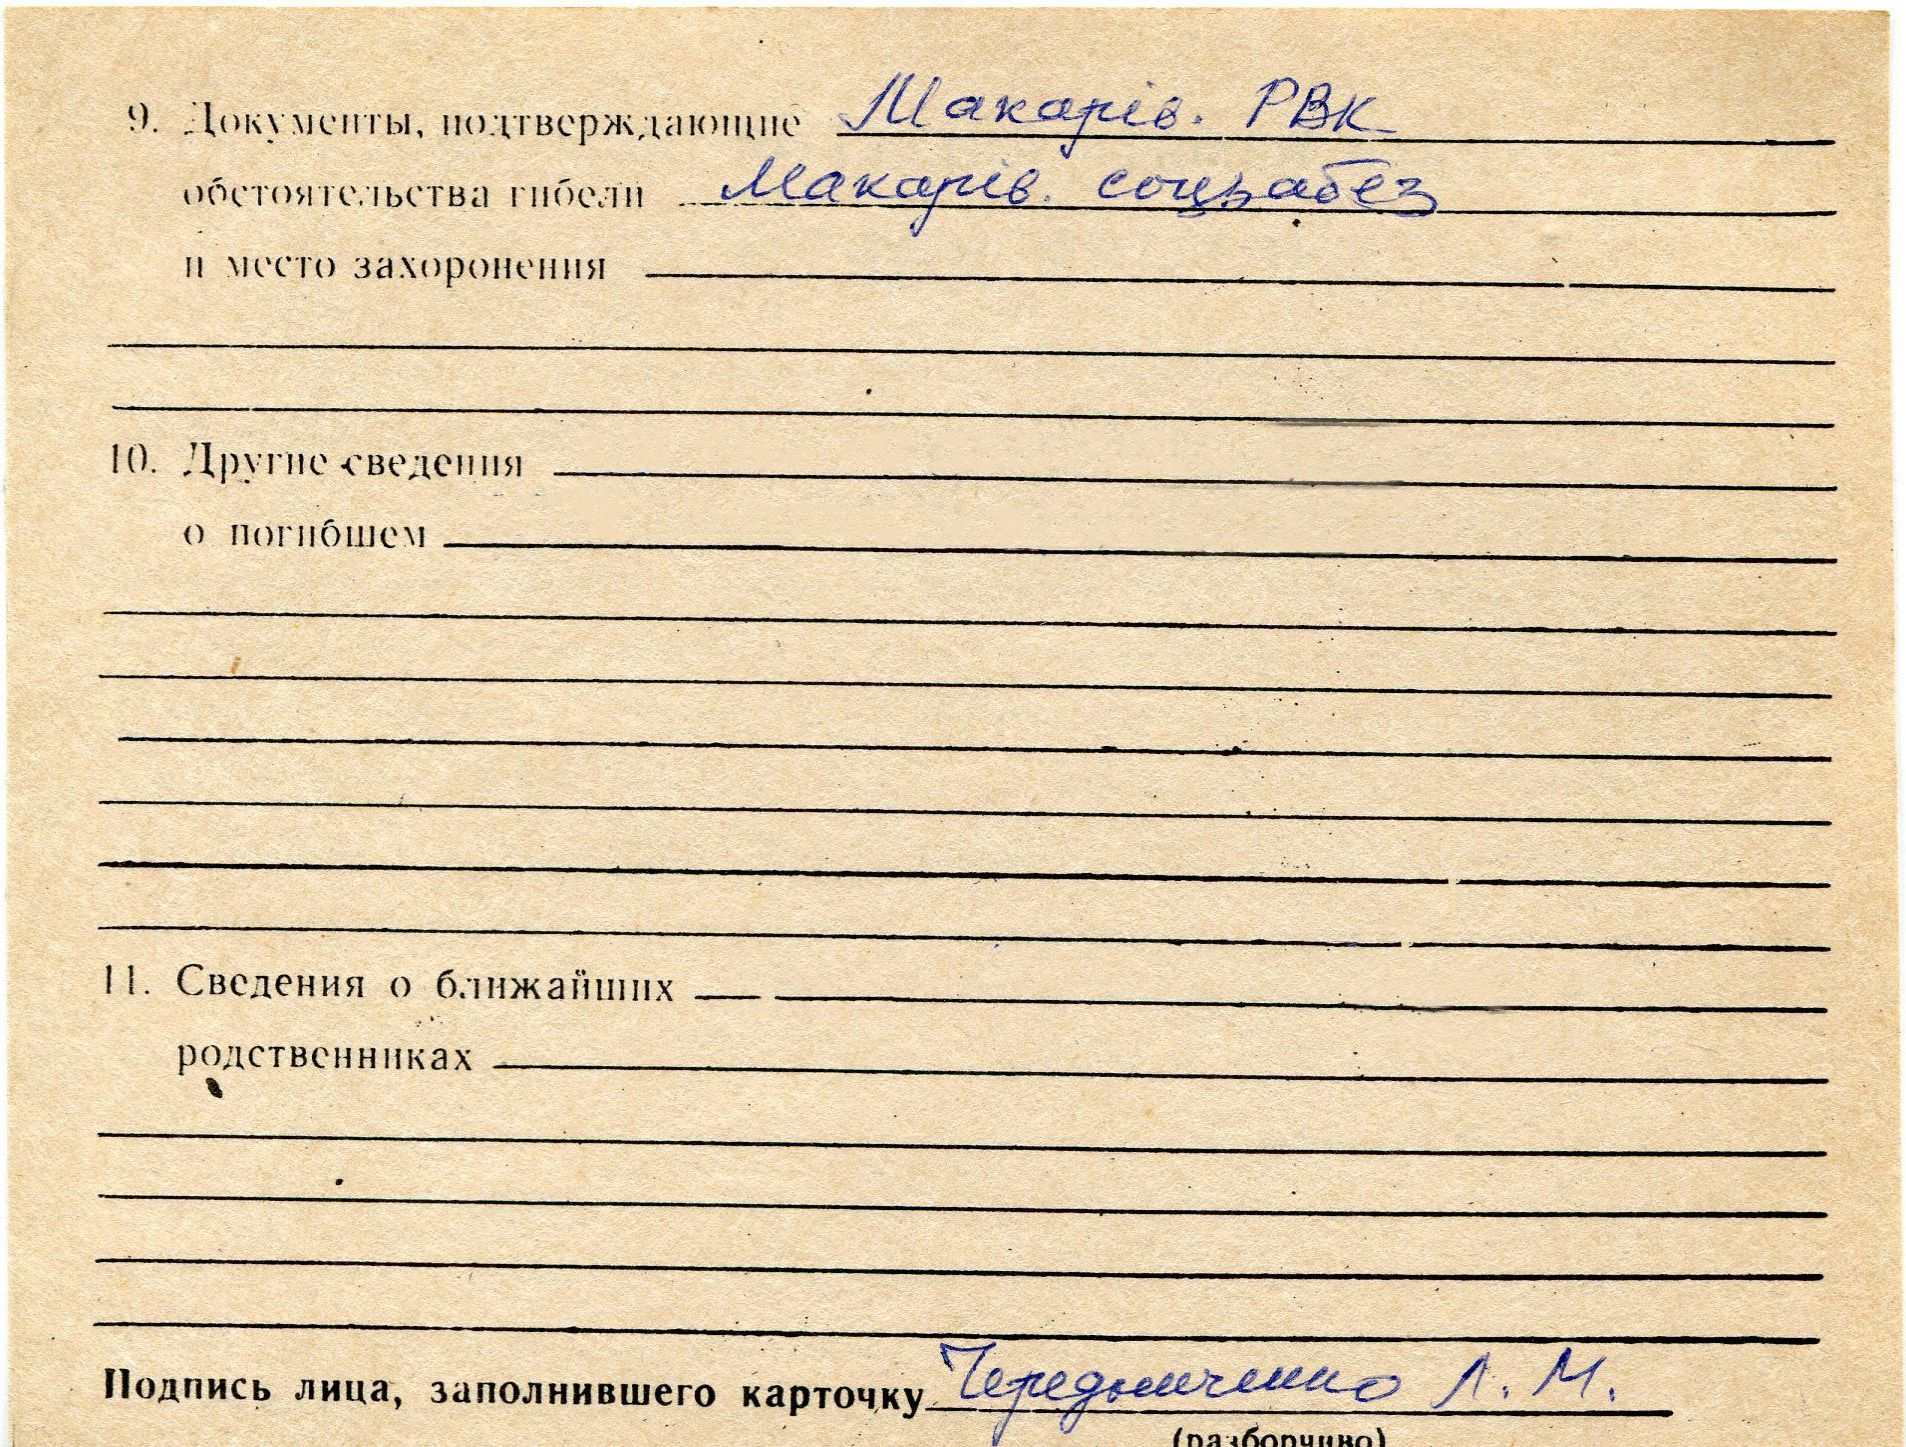 9. Документы, подтверждающие Макарів. РВК
обстоятельства гибели Макарів. соцзабез
и место захоронения
10. Другие сведения
о погибшем
11. Сведения о ближайших
родственниках
Подпись лица, заполнившего карточку Чередниченко Л. М.
(разборчиво)